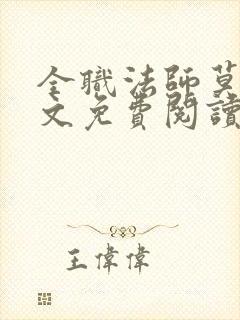 全職法師莫
文免費閱讀
王偉偉